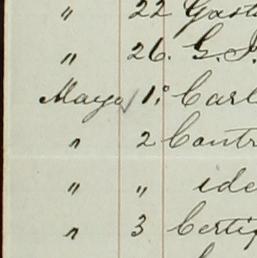 " 22 Gast
" 26. G. J.
Mayo 1º Carl
" 2 Contr
" " ide
" 3 Certif